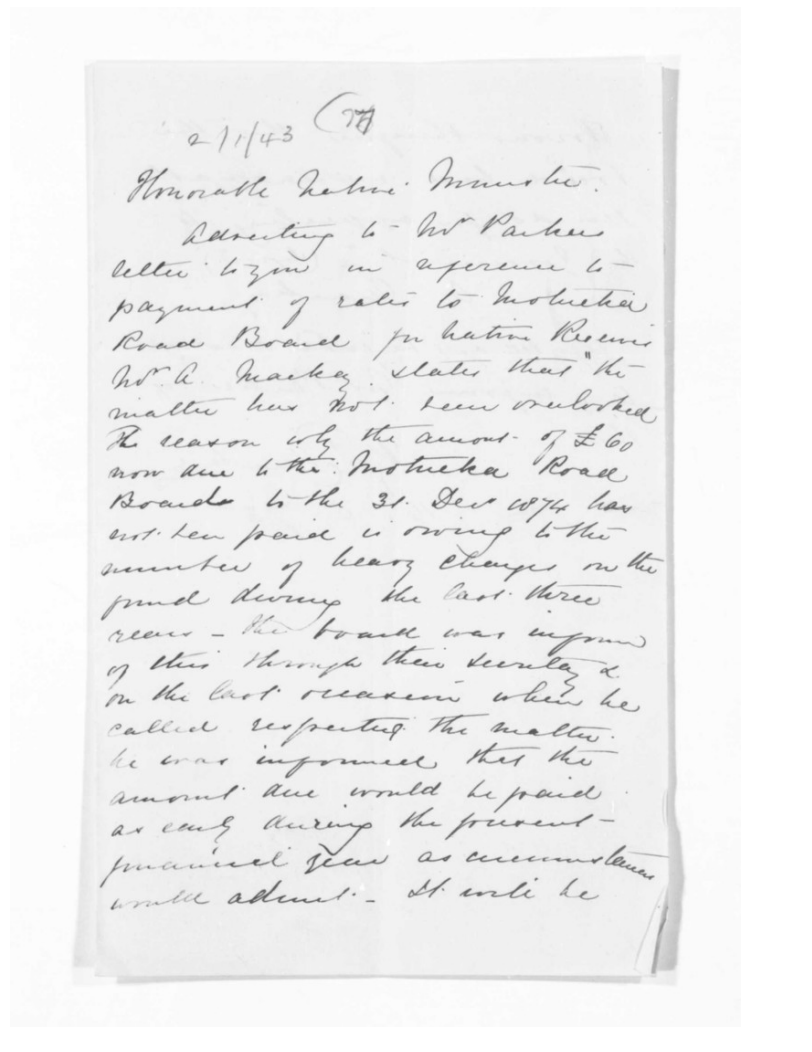 2/1/43
Honorable Native Minister.
Adverting to Mr Parkers
letter to you in reference to
payment of rates to Motueka
Road Board for Native Reserves
Mr. A. Mackay. states that "the
matter has not been overlooked
The reason why the amount of £60
now due to the Motueka Road
Board to the 31 Decr 1874 has
not been paid is owing to the
number of heavy charges on the
fund during the last three
years – the board was inform
of this through their secretary &
on the last occasion when he
called respecting the matter.
he was informed that the
amount due would be paid
as early during the present –
financial year as circumstances
would admit. – It will be